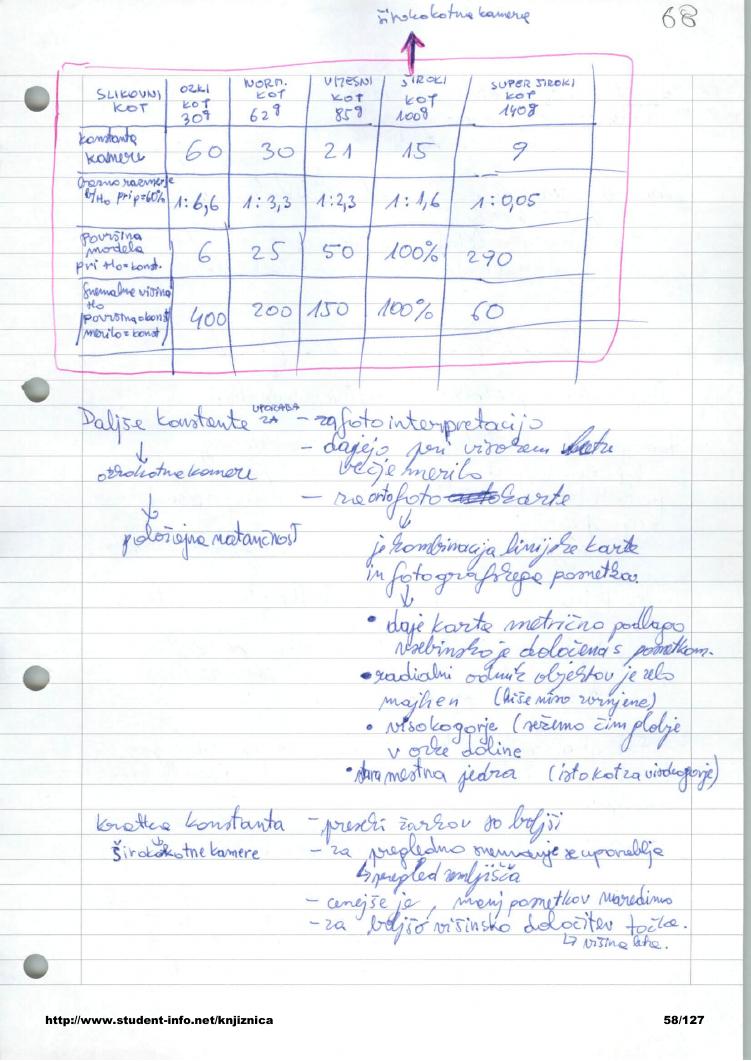 širokokotna kamera
68
SLIKOVNI KOT | OZKI KOT 30g | NORM. KOT 62g | VMESNI KOT 85g | ŠIROKI KOT 100g | SUPER ŠIROKI KOT 140g
konstanta kamere | 60 | 30 | 21 | 15 | 9
bazno razmerje b/Ho pri p=60% | 1:6,6 | 1:3,3 | 1:2,3 | 1:1,6 | 1:0,05
površina modela pri Ho=konst. | 6 | 25 | 50 | 100% | 290
Snemalne višina Ho površina=konst merilo=konst | 400 | 200 | 150 | 100% | 60
Daljše konstante UPORABA ZA – za fotointerpretacijo
– dajejo pri visokem
ozkokotne kamere večje merilo
– za ortofoto karte
položajna natančnost
je kombinacija linijske karte
in fotografskega posnetka
• daje karta metrično podlago
vsebinsko je določena s posnetkom.
• radialni odmik objektov je zelo
majhen (hiše niso zvrnjene)
• visokogorje (sežemo čim globje
v ozke doline
• stara mestna jedra (isto kot za visokogorje)
kratka konstanta – preseki žarkov so boljši
širokokotne kamere – za pregledno snemanje se uporablja
↳ pregled zemljišča
– cenejše je, manj posnetkov naredimo
– za boljšo višinsko določitev točke.
↳ višina
http://www.student-info.net/knjiznica
58/127